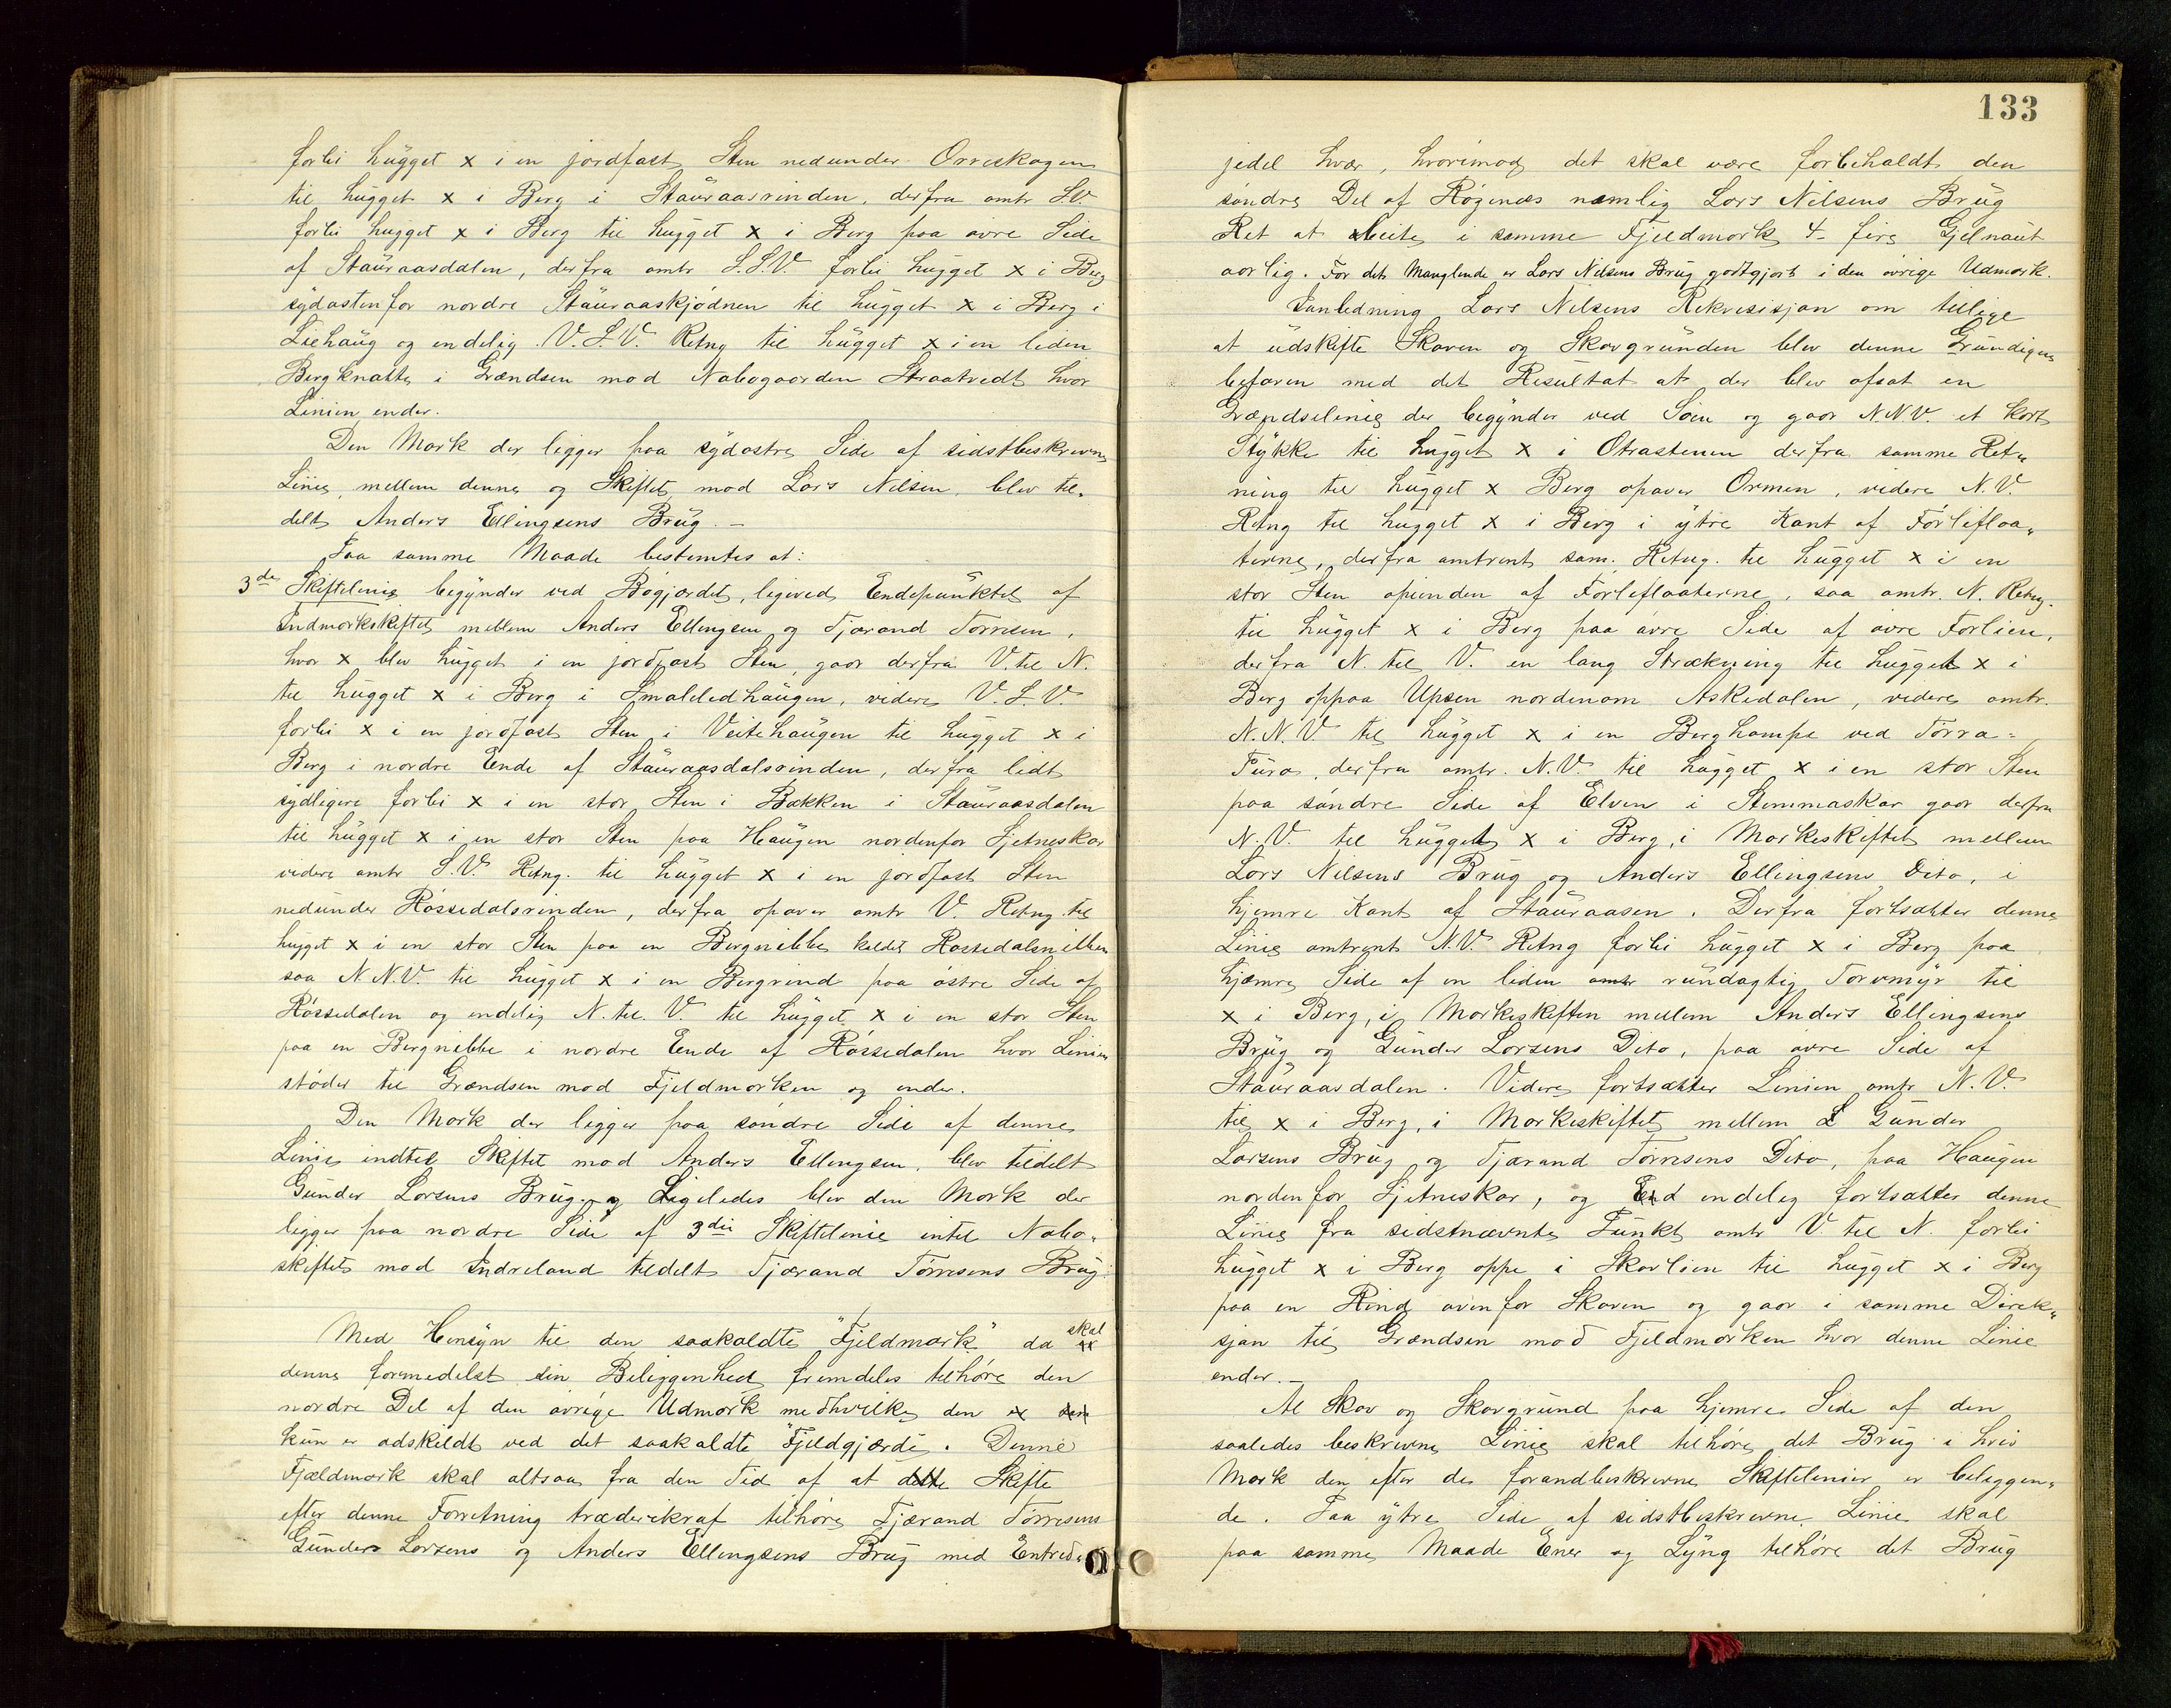 forbi hugget x i en jordfast Sten nedunder Orreskogen
til hugget x i Berg i Stauraasrinden, derfra omtr S.V.
forbi hugget x i Berg til hugget x i Berg paa øvre Side
af Stauraasdalen, derfra omtr S.S.V. forbi hugget x i Berg
sydostenfor nordre Stauraaskjødnen til hugget x i Berg i
Liehaug og endelig V.S.V. Retng til hugget x i en liden
Bergknatte i Grændsen mod Nabogaarden Straatvedt hvor
Linien ender.
Den Mark der ligger paa sydostre Side af sidstbeskrevne
Linie, mellem denne og Skiftet mod Lars Nilsen, blev til„
delt Anders Ellingsens Brug. –
Paa samme Maade bestemtes at:
3de Skiftelinie begynder ved Bøgjordet, ligeved Endepunktet af
Indmarkskiftet mellem Anders Ellingsen og Tjærand Tørresen,
hvor x blev hugget i en jordfast Sten, gaar derfra V. til N.
til hugget x i Berg i Smaleledhaugen, videre V.S.V.
forbi x i en jordfast Sten i Veitehaugen til hugget x i
Berg i nordre Ende af Stauraasdalsrinden, derfra lidt
sydligere forbi x i en stor Sten i Bækken i Stauraasdalen
til hugget x i en stor Sten paa Haugen nordenfor Sjetneskar
videre omtr S.V. Retng. til hugget x i en jordfast Sten
nedunder Røssedalsrinden, derfra opover omtr V. Retng til
hugget x i en stor Sten paa en Bergnibbe kaldet Rossedalsnibben
saa N.N.V. til hugget x i en Bergrind paa østre Side af
Røssedalen og endelig N. til V. til hugget x i en stor Sten
paa en Bergnibbe i nordre Ende af Røssedalen hvor Linien
støder til Grændsen mod Fjeldmarken og ender.
Den Mark der ligger paa søndre Side af denne
Linie indtil Skiftet mod Anders Ellingsen, blev tildelt
Gunder Larsens Brug. og Ligeledes blev den Mark der
ligger paa nordre Side af 3die Skiftelinie intil Nabo„
skiftet mod Indreland tildelt Tjærand Tørresens Brug.
Med Hensyn til den saakaldte "Fjeldmark" da skal
denne formedelst sin Beliggenhed fremdeles tilhøre den
nordre Del af den øvrige Udmark medhvilke den er
kun er adskildt ved det saakaldte Fjeldgjærde. Denne
Fjældmark skal altsaa fra den Tid af at dette Skifte
efter denne Forretning træderikraf tilhøre Tjærand Tørresens
Gunder Larsens og Anders Ellingsens Brug med Entredie
133
jedel hver, hvorimod det skal være forbeholdt den
søndre Del af Røgenæs nemlig Lars Nilsens Brug
Ret at beite i samme Fjeldmark 4- fire Gjelnaut
aarlig. For det Manglende er Lars Nilsens Brug godtgjort i den øvrige Udmark.
Ianledning Lars Nilsens Rekvisisjon om tillige
at udskifte Skoven og Skovgrunden blev denne Grundigen
befaren med det Resultat at der blev afsat en
Grændselinie der begynder ved Søen og gaar N.N.V. et kort
Stykke til hugget x i Otrastenen derfra samme Ret„
ning til hugget x Berg opover Ormen, videre N.V.
Retng til hugget x i Berg i ytre Kant af Førlefloa„
terne, derfra omtrent sam. Retng. til hugget x i en
stor Sten opienden af Førlefloaterne, saa omtr. N. Retng.
til hugget x i Berg paa øvre Side af øvre Førlien,
derfra N. til V. en lang Strækning til hugget x i
Berg oppaa Upsen nordenom Askedalen, videre omtr.
N.N.V til hugget x i en Berghampe ved Tørra=
Furo, derfra omtr. N.V. til hugget x i en stor Sten
paa søndre Side af Elven i Stemmaskar gaar derfra
N.V. til hugget x i Berg, i Markeskiftet mellem
Lars Nilsens Brug og Anders Ellingsens Dito, i
hjemre Kant af Stauraasen. Derfra fortsætter denne
Linie omtrent N.V. Retng forbi hugget x i Berg paa
hjæmre Side af en liden omtr rundagtig Torvmyr til
x i Berg, i Markeskiften mellem Anders Ellingsens
Brug og Gunder Larsens Dito, paa øvre Side af
Stauraasdalen. Videre fortsætter Linien omtr N.V.
til x i Berg, i Markeskiftet mellem L Gunder
Larsens Brug og Tjærand Tørresens Dito, paa Haugen
nordenfor Sjetneskar, og End endelig fortsætter denne
Linie fra sidstnævnte Punkt omtr V. til N. forbi
hugget x i Berg oppe i Skorlien til hugget x i Berg
paa en Rind ovenfor Skoven og gaar i samme Direk„
sjon til Grændsen mod Fjeldmarken hvor denne Linie
ender. –
Al Skov og Skovgrund paa hjemre Side af den
saaledes beskrevne Linie skal tilhøre det Brug i hvis
Mark den efter de forandbeskrevne Skiftelinier er beliggen„
de. Paa ytre Side af sidstbeskrevne Linie skal
paa samme Maade Ener og Lyng tilhøre det Brug